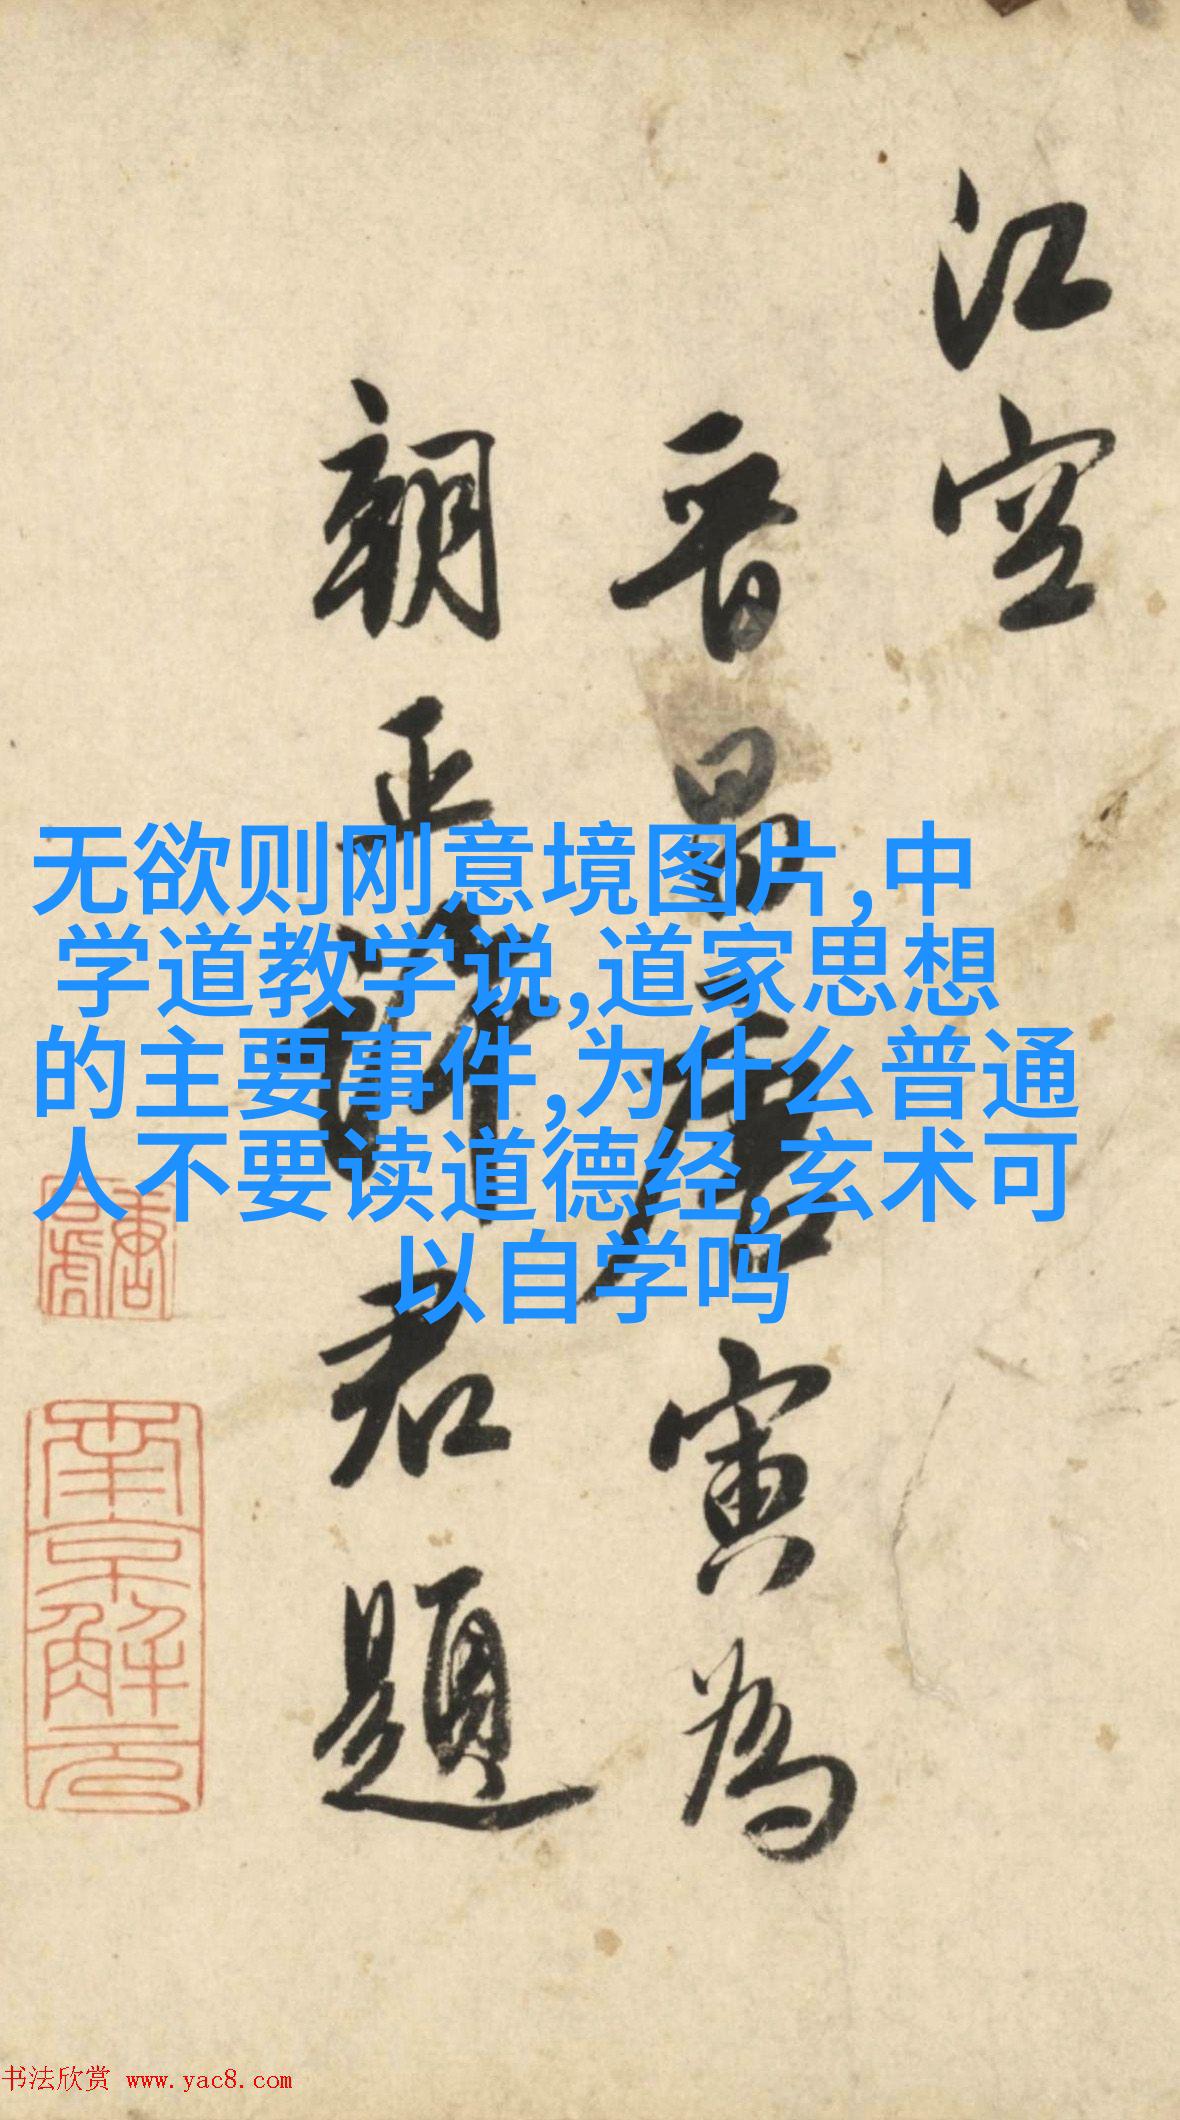 江空
晋昌唐寅为
朝正许君题
无欲则刚意境图片,中
学道教学说,道家思想
的主要事件,为什么普通
人不要读道德经,玄术可
以自学吗
南京解元
书法欣赏 www.yac8.com